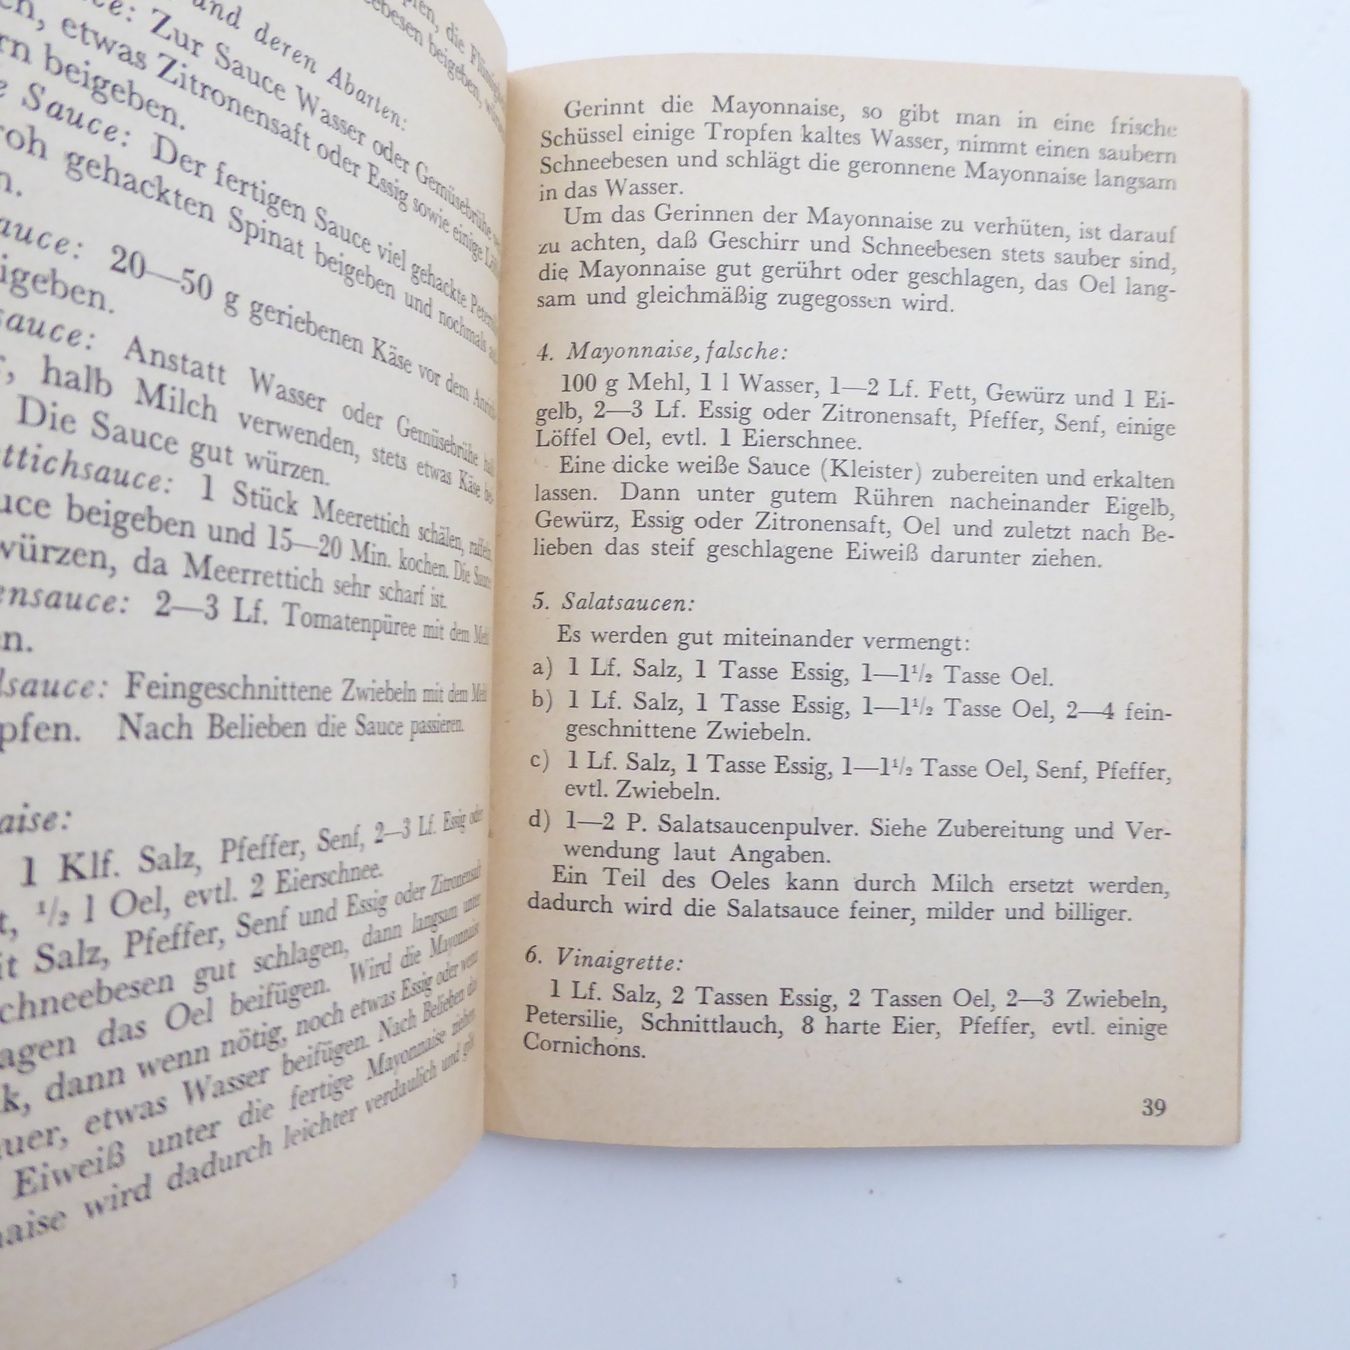 und deren Abarten:
Zur Sauce Wasser oder Gemüsebrühe
etwas Zitronensaft oder Essig sowie einige
beigeben.
Sauce: Der fertigen Sauce viel gehackte
gehackten Spinat beigeben und nochmals
20—50 g geriebenen Käse vor dem
Anstatt Wasser oder Gemüsebrühe
halb Milch verwenden, stets etwas Käse
Die Sauce gut würzen.
1 Stück Meerettich schälen, raffeln
beigeben und 15—20 Min. kochen. Die
würzen, da Meerrettich sehr scharf ist.
2—3 Lf. Tomatenpüree mit dem
Feingeschnittene Zwiebeln mit dem Mehl
Nach Belieben die Sauce passieren.
1 Klf. Salz, Pfeffer, Senf, 2—3 Lf. Essig oder
½ l Oel, evtl. 2 Eierschnee.
Salz, Pfeffer, Senf und Essig oder Zitronensaft
gut schlagen, dann langsam unter
das Oel beifügen. Wird die Mayonnaise
dann wenn nötig, noch etwas Essig oder wenn
etwas Wasser beifügen. Nach Belieben das
Eiweiß unter die fertige Mayonnaise ziehen
wird dadurch leichter verdaulich und
Gerinnt die Mayonnaise, so gibt man in eine frische
Schüssel einige Tropfen kaltes Wasser, nimmt einen saubern
Schneebesen und schlägt die geronnene Mayonnaise langsam
in das Wasser.
Um das Gerinnen der Mayonnaise zu verhüten, ist darauf
zu achten, daß Geschirr und Schneebesen stets sauber sind,
die Mayonnaise gut gerührt oder geschlagen, das Oel lang-
sam und gleichmäßig zugegossen wird.
4. Mayonnaise, falsche:
100 g Mehl, 1 l Wasser, 1—2 Lf. Fett, Gewürz und 1 Ei-
gelb, 2—3 Lf. Essig oder Zitronensaft, Pfeffer, Senf, einige
Löffel Oel, evtl. 1 Eierschnee.
Eine dicke weiße Sauce (Kleister) zubereiten und erkalten
lassen. Dann unter gutem Rühren nacheinander Eigelb,
Gewürz, Essig oder Zitronensaft, Oel und zuletzt nach Be-
lieben das steif geschlagene Eiweiß darunter ziehen.
5. Salatsaucen:
Es werden gut miteinander vermengt:
a) 1 Lf. Salz, 1 Tasse Essig, 1—1½ Tasse Oel.
b) 1 Lf. Salz, 1 Tasse Essig, 1—1½ Tasse Oel, 2—4 fein-
geschnittene Zwiebeln.
c) 1 Lf. Salz, 1 Tasse Essig, 1—1½ Tasse Oel, Senf, Pfeffer,
evtl. Zwiebeln.
d) 1—2 P. Salatsaucenpulver. Siehe Zubereitung und Ver-
wendung laut Angaben.
Ein Teil des Oeles kann durch Milch ersetzt werden,
dadurch wird die Salatsauce feiner, milder und billiger.
6. Vinaigrette:
1 Lf. Salz, 2 Tassen Essig, 2 Tassen Oel, 2—3 Zwiebeln,
Petersilie, Schnittlauch, 8 harte Eier, Pfeffer, evtl. einige
Cornichons.
39